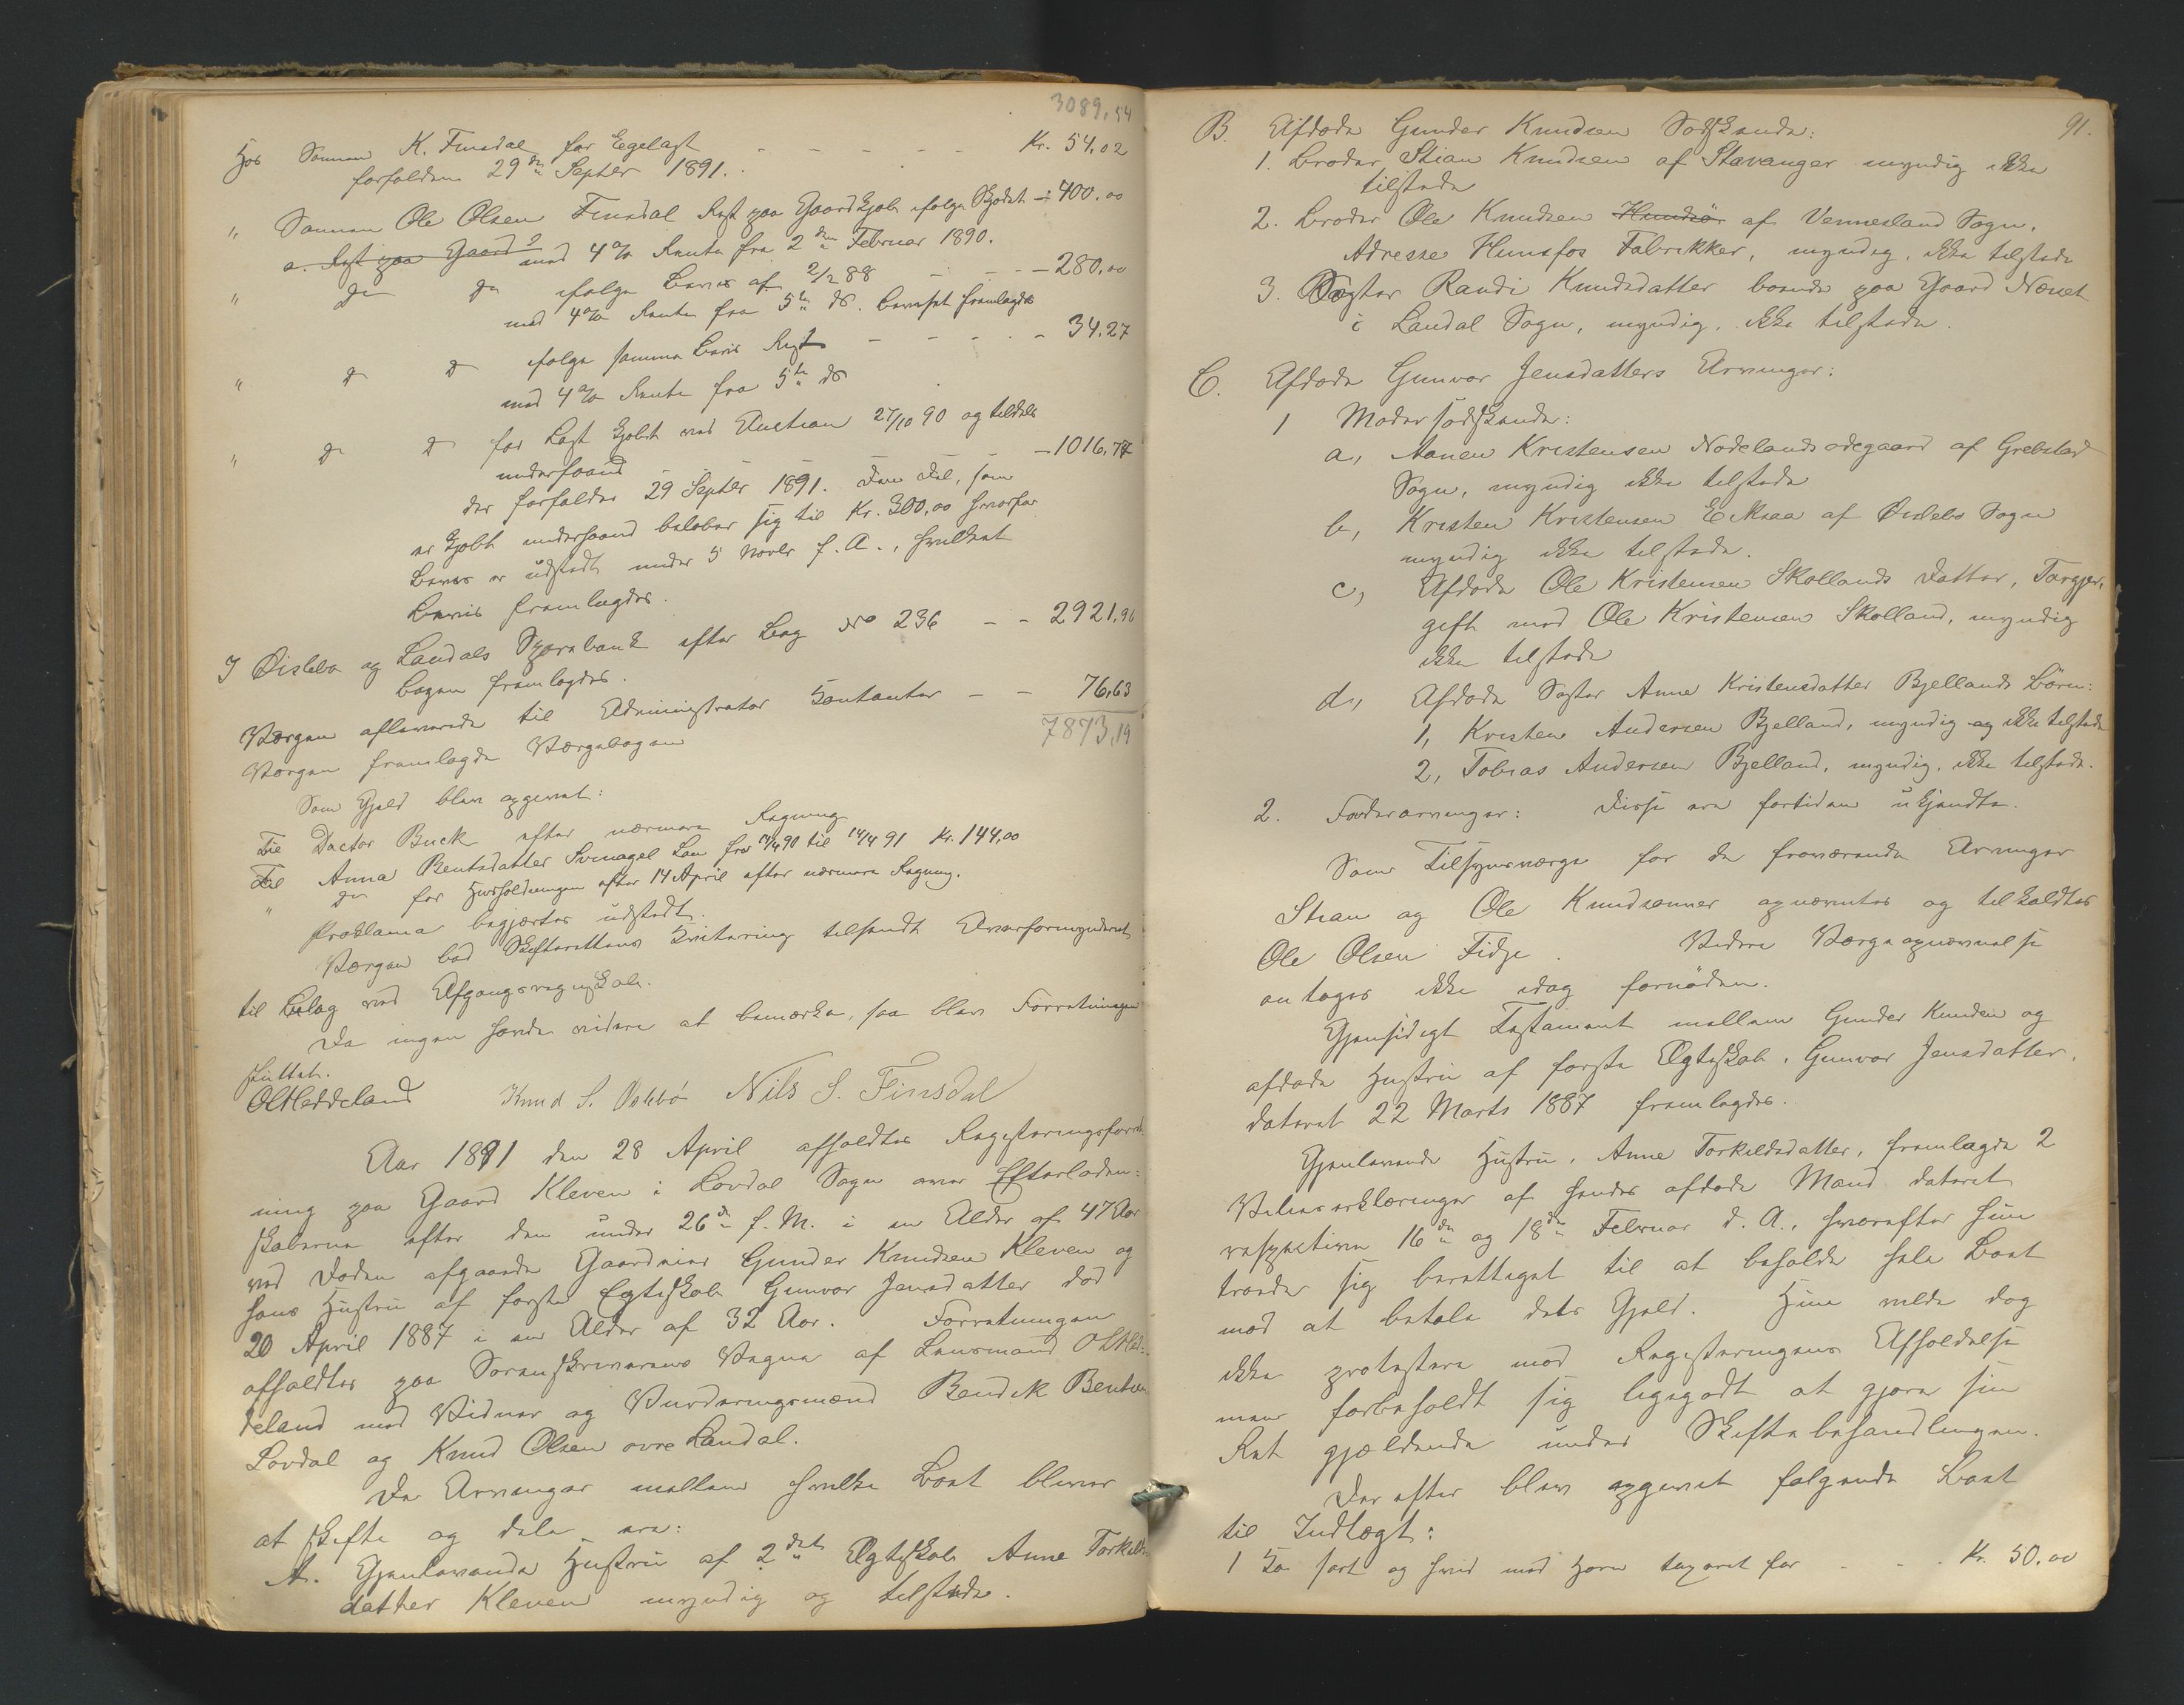 3089,54
Hos Sønnen K. Finsdal for Egelagt - - - - - Kr. 54,02
forfalden 29de Septbr 1891.
" Sønnen Ole Olsen Finsdal Rest paa Gaardkjøb ifølge Skjødet - 400,00
a. Rest paa Gaard med 4% Rente fra 2den Februar 1890.
" do do ifølge Bevis af 2/2 88 - - - 280,00
med 4% Rente fra 5te ds. Beviset fremlagdes
" do do ifølge samme Bevis Rest - - - - 34,27
med 4% Rente fra 5te ds
" do do for Løst kjøbt ved Auction 27/10 90 og tildels
underhaand - 1016,77
der forfalder 29 Septbr 1891. Den Del, som
er kjøbt underhaand beløber sig til Kr. 300,00 hvorfor
Bevis er udstedt under 5 Novbr f. A., hvilket
Bevis fremlagdes.
I Øislebø og Laudals Sparebank efter Bog No 236 - - 2921,96
Bogen fremlagdes.
Værgen afleverede til Administrator Contanter - - 76,63
7873,19
Værgen fremlagde Værgebogen
Som Gjæld blev opgivet:
Til Doctor Buck efter nærmere Regning
Til Anna Bentsdatter Svinagel Løn fra 14/4 90 til 14/4 91 Kr. 144,00
" do for Husholdningen efter 14 April efter nærmere Regning.
Proklama begjærtes udstedt.
Værgen bad Skifterettens Kvitering tilsendt Overformynderiet
til Bilag ved Afgangsregnskab.
Da ingen havde videre at bemærke, saa blev Forretningen
sluttet.
OAHeddeland Knud S. Nils S. Finsdal
Aar 1891 den 28 April afholdtes Registreringsforret-
ning paa Gaard Kleven i Løvdal Sogn over Efterladen-
skaberne efter den under 26de f. M. i en Alder af 47 Aar
ved Døden afgaaede Gaardeier Gunder Knudsen Kleven og
hans Hustru af første Egteskab Gunvor Jensdatter død
20 April 1887 i en Alder af 32 Aar. Forretningen
afholdtes paa Sorenskriverens Vegne af Lensmand OAHed-
deland med Vidner og Vurderingsmænd Bendik Bentsen
Løvdal og Knud Olsen øvre Laudal.
De Arvinger mellem hvilke Boet bliver
at skifte og dele ere:
A. Gjenlevende Hustru af 2det Ægteskab Anne Torkelds-
datter Kleven myndig og tilstede.
91.
B. Afdøde Gunder Knudsen Sødskende:
1. Broder, Stian Knudsen af Stavanger myndig ikke
tilstede
2. Broder Ole Knudsen Hundsør af Vennesland Sogn,
Adresse Hunsfos Fabrikker, myndig, ikke tilstede
3. Søster Randi Knudsdatter boende paa Gaard Næset
i Laudal Sogn, myndig, ikke tilstede.
C. Afdøde Gunvor Jensdatters Arvinger:
1 Moders sødskende:
a, Aanen Kristensen Nodelandsødegaard af Grebstad
Sogn, myndig ikke tilstede
b, Kristen Kristensen Eiksaa af Øislebø Sogn
myndig ikke tilstede.
c, Afdøde Ole Kristensen Skollands Datter, Torgjer,
gift med Ole Kristensen Skolland, myndig
ikke tilstede
d, Afdøde Søster Anne Kristensdatter Bjellands Børn:
1, Kristen Andersen Bjelland, myndig og ikke tilstede
2, Tobias Andersen Bjelland, myndig, ikke tilstede.
2. Faderarvinger: Disse ere fortiden ukjendte.
Som Tilsynsværge for de fraværende Arvinger
Stian og Ole Knudsønner opnævntes og tilkaldtes
Ole Olsen Fidje. Videre Værgeopnævnelse
antoges ikke idag fornøden.
Gjensidigt Testament mellem Gunder Knudsen og
afdøde Hustru af første Ægteskab, Gunvor Jensdatter,
dateret 22 Marts 1887 fremlagdes.
Gjenlevende Hustru, Anne Torkildsdatter, fremlagde 2
Villieserklæringer af hendes afdøde Mand dateret
respektive 16de og 18de Februar d. A., hvorefter hun
troede sig berettiget til at beholde hele Boet
mod at betale dets Gjæld. Hun vilde dog
ikke protestere mod Registreringens Afholdelse
men forbeholdt sig ligegodt at gjøre sin
Ret gjældende under Skiftebehandlingen.
Derefter blev opgivet følgende Boet
til Indtægt:
1 Ko sort og hvid med Horn taxeret for - - - Kr. 50,00